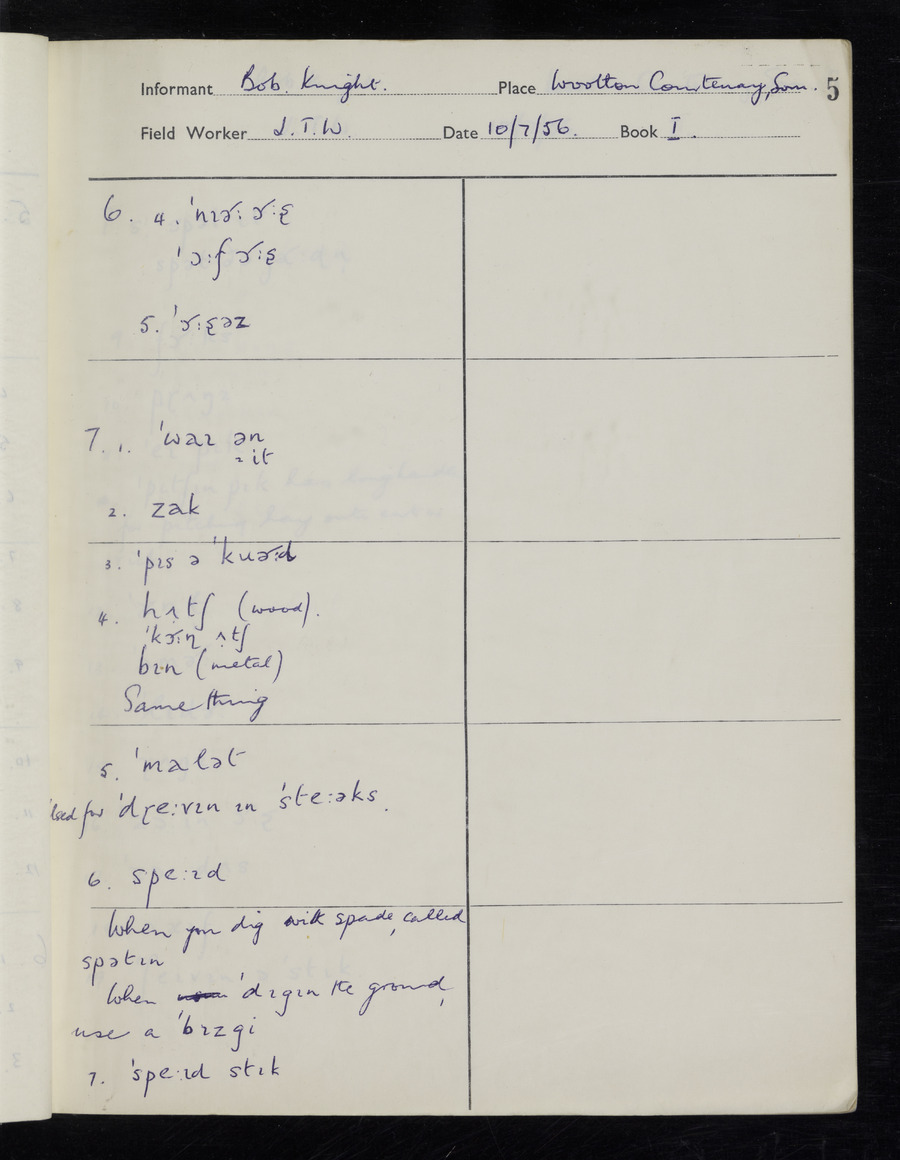 Informant Bob. Knight. Place Wootton Courtenay, Som. 5
Field Worker J.T.W. Date 10/7/56. Book I.
6. 4. ˈnɪɚː ɚːɛ̨
ˈɔːf ɚːɛ̨
5. ˈɚːɛ̨əz
7. 1. ˈwaɪ ən
= it
2. zak
3. ˈpɪs ə ˈkuɚːd
4. hʌtʃ (wood).
ˈkɚːn̩ ʌtʃ
bɪn (metal)
Same thing
5. ˈmalət
Used for ˈdɽeːvɪn ɪn ˈsteːəks.
6. speːɪd
When you dig with spade, called
spətɪn
When ˈdɪgɪn the ground,
use a ˈbɪzgi
7. ˈspeːɪd stɪk